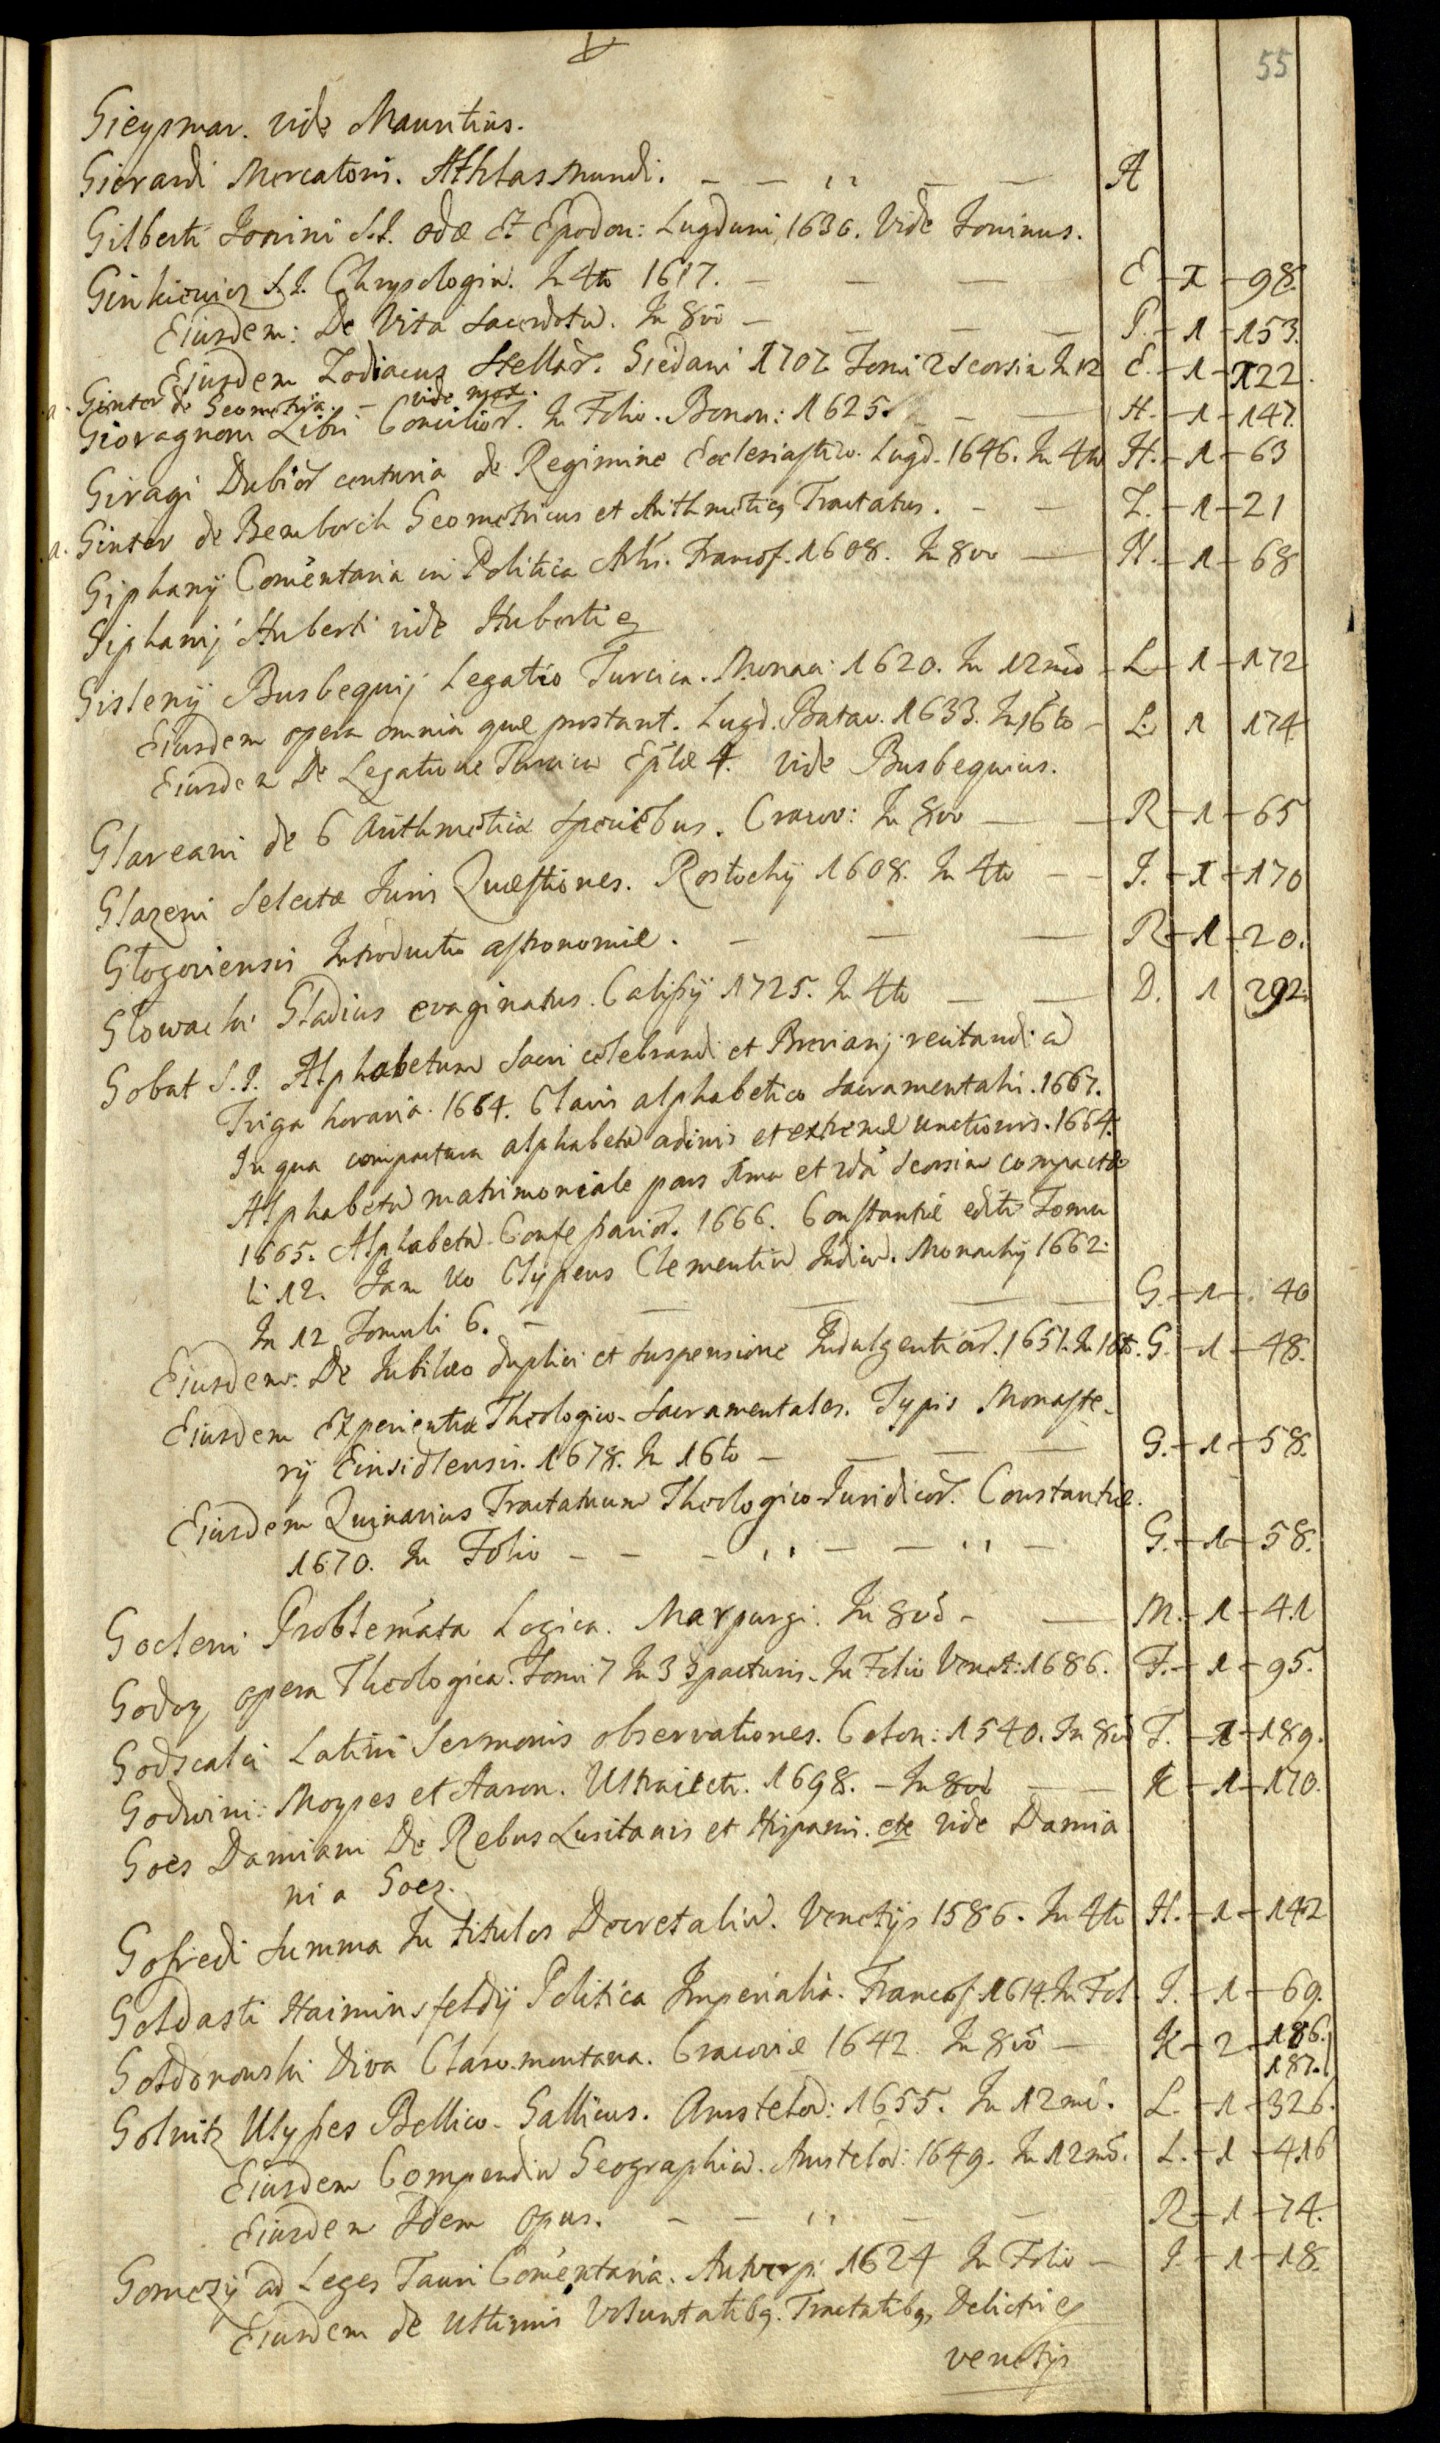 55
Gieysmar. vide Mauritius.
Gierardi Mercatoris. Athlas Mundi. — — ,, — — A
Gilberti Jonini S.J. Odæ et Epodon: Lugduni, 1636. Vide Joninus.
Ginkiewicz S.J. Chrysologiu. In 4to 1617. — — — E — 1 — 98.
Eiusdem: De Vita Sacerdotū. In 8vo — — — — P. — 1 — 153.
Eiusdem Zodiacus Stellar. Giedani 1702 Tomi 2 seorsim In 12 E. — 1 — 122.
a. Ginter de Geometria. — vide mox.
Gioragnoni Libri Concilior. In Folio. Bonon: 1625. — — H. — 1 — 147.
Giragi Dubior centuria de Regimine Ecclesiastico. Lugd. 1646. In 4to H. — 1 — 63
a. Ginter de Bemborch Geometricus et Arithmeticq Tractatus. — — Z. — 1 — 21
Giphanij Comentaria in Politica Arhi. Francof. 1608. In 8vo — H. — 1 — 68
Giphanij Huberti vide Huberti
Gislenij Busbequij Legatio Turcica. Monaci: 1620. In 12mo — L — 1 — 172
Eiusdem opera omnia quæ prostant. Lugd. Batav. 1633. In 16to — L. 1 174
Eiusdem De Legatione Turcica Eplæ 4. vide Busbequius.
Glareani de 6 Arithmeticæ speciebus. Cracov: In 8vo — — R — 1 — 65
Glazeni Selectæ Juris Quæstiones. Rostochij 1608. In 4to — — I. — 1 — 170
Głogoviensis Introductio astronomiæ. — — — R — 1 — 20.
Głowacki Gladius evaginatus. Calissij 1725. In 4to — — D. 1 292.
Gobat S.J. Alphabetum Sacri celebrandi et Breviarij recitandi cū
Triga horaria. 1664. Clavis alphabetica Sacramentalis. 1667.
In qua compactura alphabetū ordinis et extremæ unctionis. 1664.
Alphabetū matrimoniale pars 1ma et 2da seorsim compactæ
1665. Alphabetū Confessarior. 1666. Constantiæ editi Tomu
li 12. Jam vo Clypeus Clementiū Judicū. Monachij 1662.
In 12 Tomuli 6. — — — — — G. — 1 — 40
Eiusdem: De Jubilæo duplici et suspensione Indulgentiar. 1651. In 16to. G. — 1 — 48.
Eiusdem Experientiæ Theologico-Sacramentales. Typis Monaste-
rij Einsidlensis. 1678. In 16to — — — — G. — 1 — 58.
Eiusdem Quinarius Tractatuum Theologico-Juridicor. Constantiæ.
1670. In Folio — — — ,, — — ,, — G. — 1 — 58.
Gocleni Problemata Logica. Marpurgi. In 8vo — — M. — 1 — 41
Godoy opera Theologica. Tomi 7 In 3 9pacturis. In Folio Venet: 1686. F. — 1 — 95.
Godscalci Latini Sermonis observationes. Colon: 1540. In 8vo T. — 1 — 189.
Godwini: Moyses et Aaron. Ultraiecti. 1698. — In 8vo — — K — 1 — 170.
Goes Damiani De Rebus Lusitanis et Hispanis. etc vide Damia
ni a Goez.
Gofredi Summa In titulos Decretaliū. Venetijs 1586. In 4to H. — 1 — 142
Goldasti Haiminsfeldij Politica Imperialia. Francof. 1614. In Fol. I. — 1 — 69.
Goldonowski Diva Claro.montana. Cracoviæ 1642. In 8vo — K — 2 — 186.
187.
Golnitz Ulysses Bellico-Gallicus. Amstelod: 1655. In 12mo. L. — 1 — 326.
Eiusdem Compendiū Geographicū. Amstelod: 1649. In 12mo. L. — 1 — 416
Eiusdem Idem Opus. — — ,, — — R — 1 — 74.
Gomezij ad Leges Tauri Comentaria. Antverp. 1624 In Folio — I. — 1 — 18.
Eiusdem de Ultimis Voluntatibq. Tractatibq, Delictis
venetijs